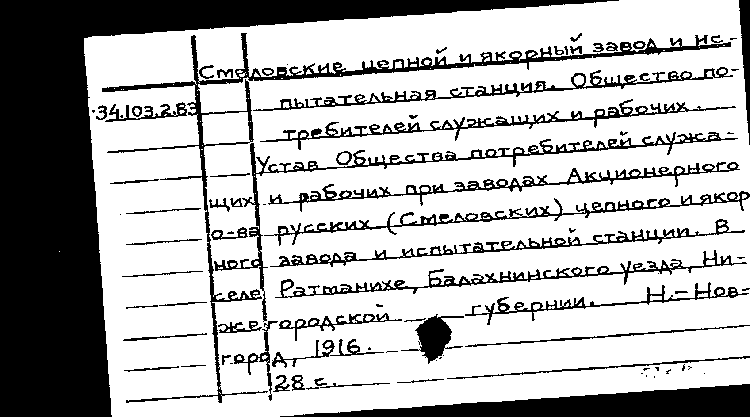 Смеловские цепной и якорный завод и ис-
34.103.2.83 пытательная станция. Общество по-
требителей служащих и рабочих.
Устав Общества потребителей служа-
щих и рабочих при заводах Акционерного
о-ва русских (Смеловских) цепного и якор
ного завода и испытательной станции. В
селе Ратманихе, Балахнинского уезда, Ни-
жегородской губернии. Н.-Нов-
город, 1916.
28 с.